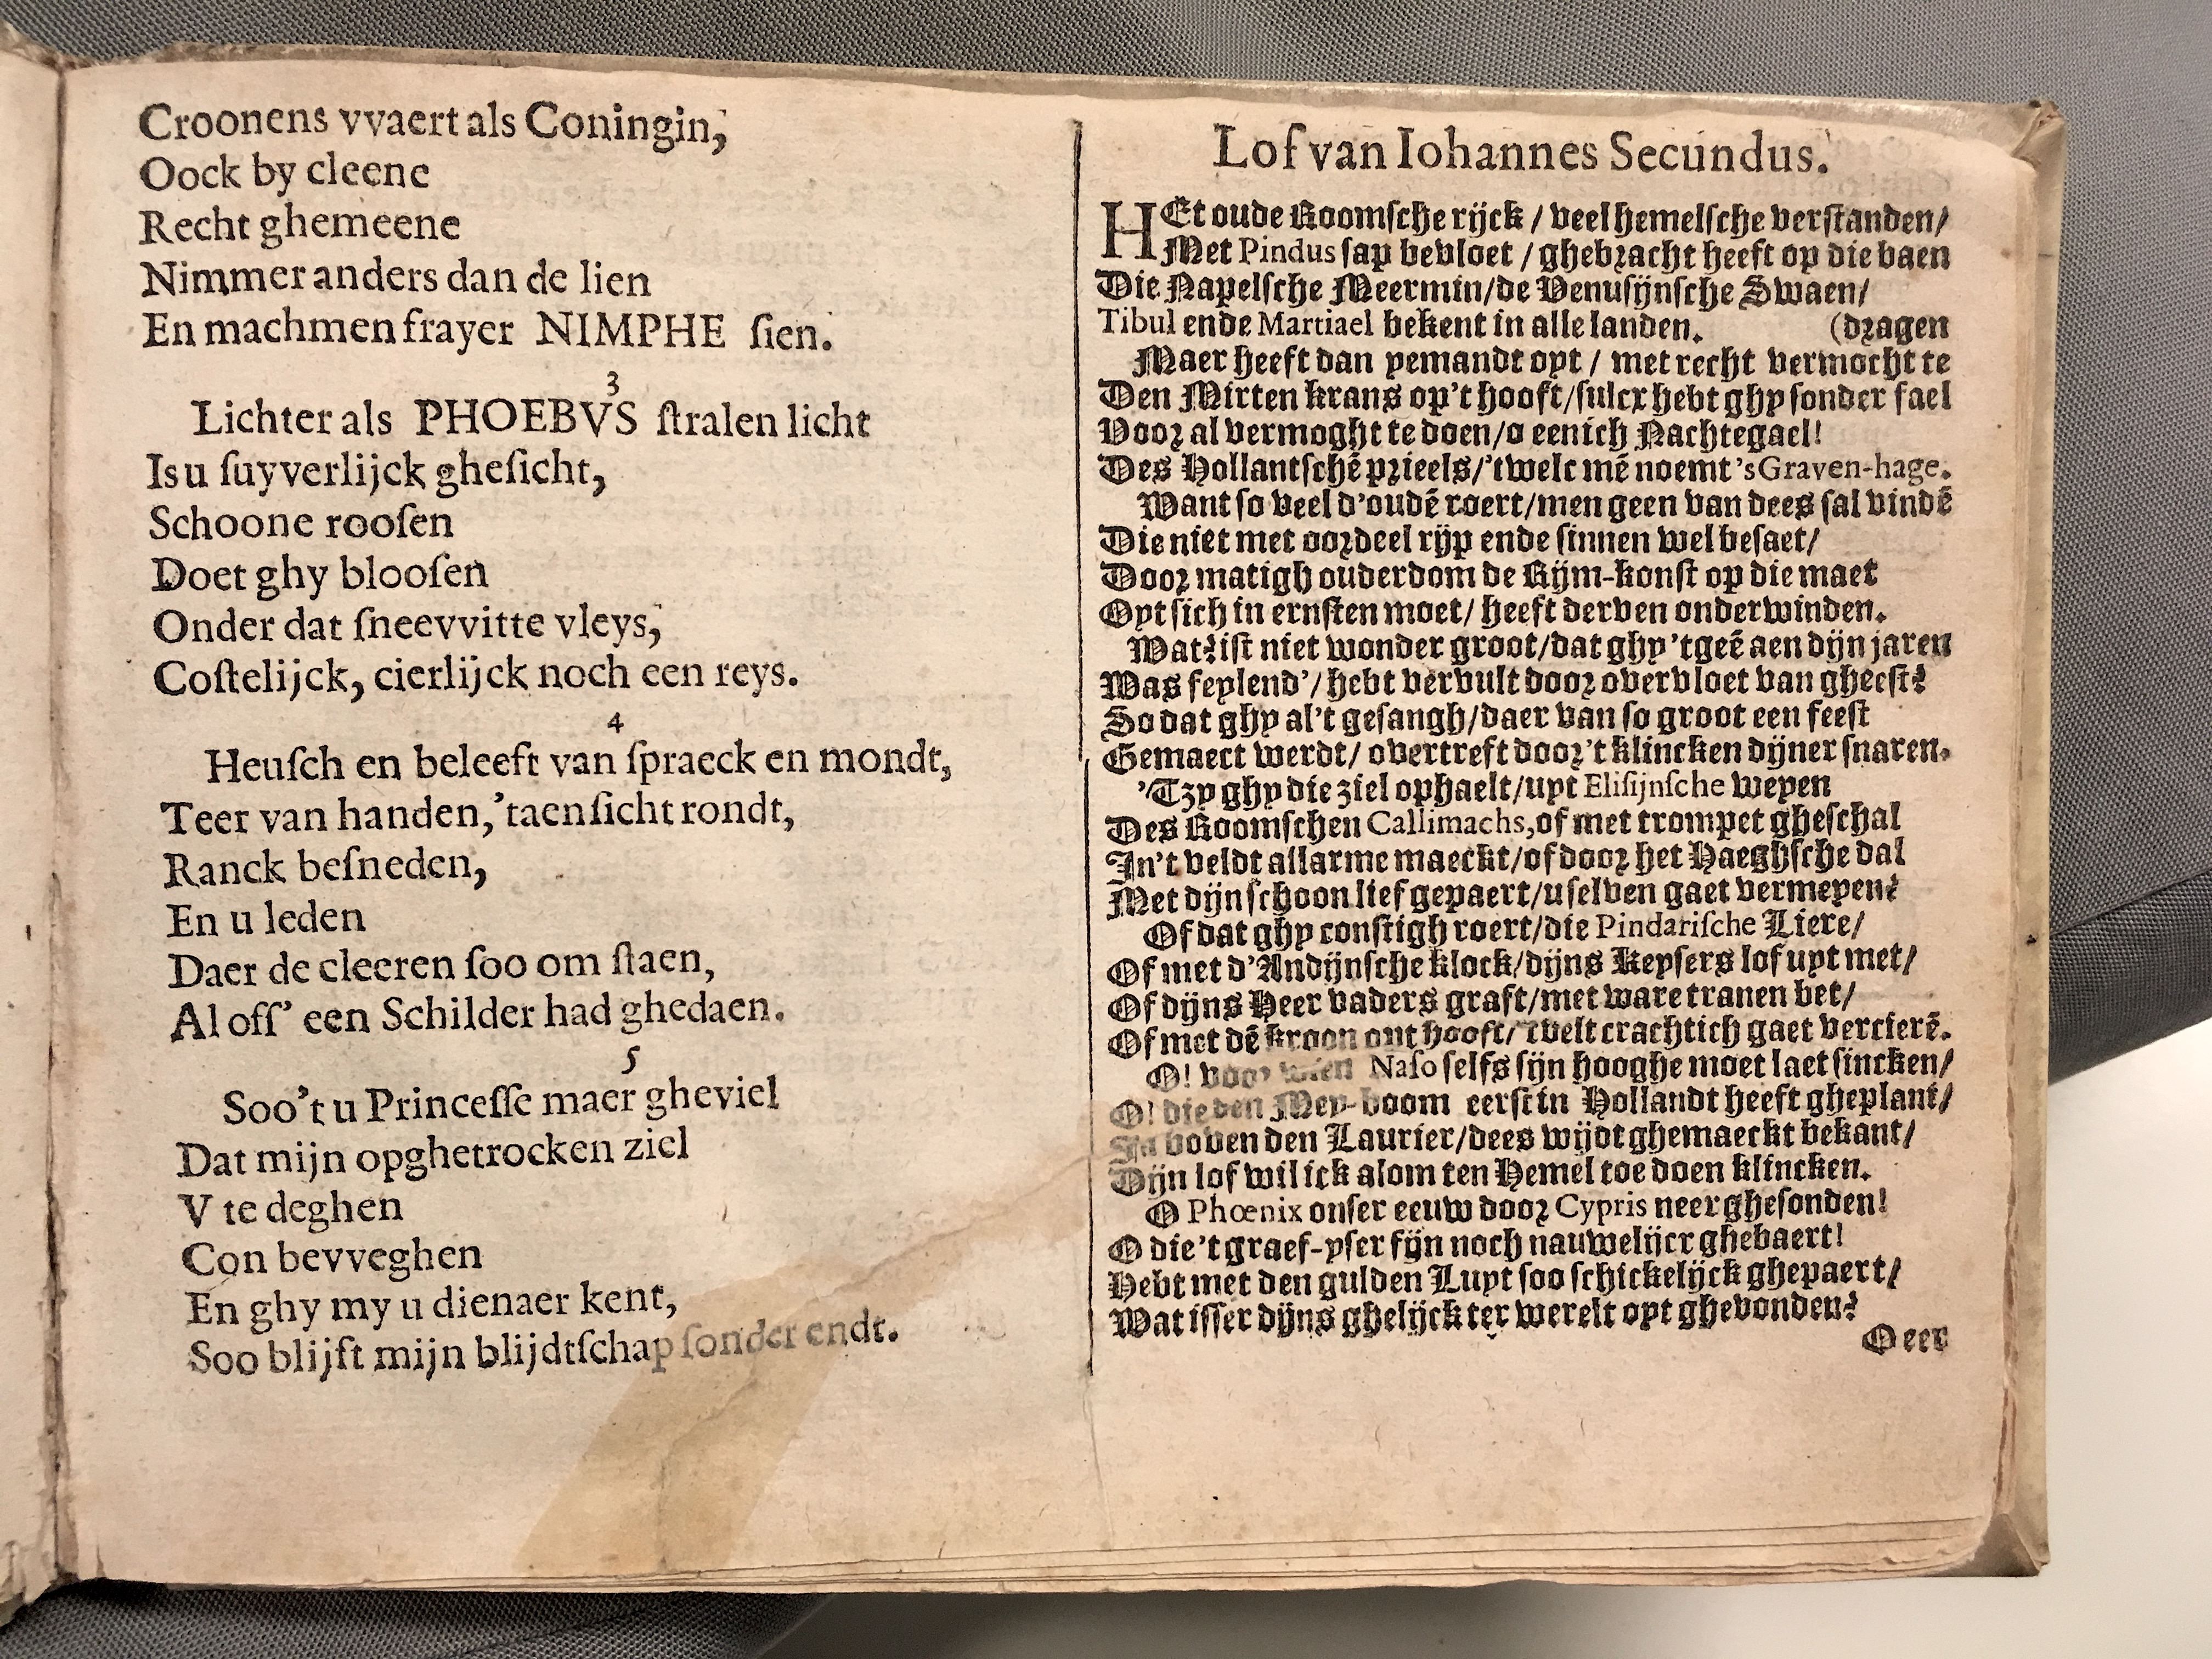 Croonens vvaert als Coningin,
Oock by cleene
Recht ghemeene
Nimmer anders dan de lien
En machmen frayer NIMPHE ſien.
3
Lichter als PHOEBVS ſtralen licht
Is u ſuyverlijck gheſicht,
Schoone rooſen
Doet ghy blooſen
Onder dat ſneevvitte vleys,
Coſtelijck, cierlijck noch een reys.
4
Heuſch en beleeft van ſpraeck en mondt,
Teer van handen,'taenſicht rondt,
Ranck beſneden,
En u leden
Daer de cleeren ſoo om ſtaen,
Al off' een Schilder had ghedaen.
5
Soo't u Princeſſe maer gheviel
Dat mijn opghetrocken ziel
V te deghen
Con bevveghen
En ghy my u dienaer kent,
Soo blijft mijn blijdtſchap ſonder endt.
Lof van Iohannes Secundus.
HEt oude Roomſche rijck / veel hemelſche verſtanden/
Met Pindus ſap bevloet / ghebracht heeft op die baen
Die Napelſche Meermin/de Venuſijnſche Swaen/
Tibul ende Martiael bekent in alle landen. (dragen
Maer heeft dan yemandt oyt / met recht vermocht te
Den Mirten krans op't hooft/ſulcx hebt ghy ſonder fael
Voor al vermoght te doen/o eenich Nachtegael!
Des Hollantſchẽ prieels/'twelc mẽ noemt 'sGraven-hage.
Want ſo veel d'oudẽ roert/men geen van dees ſal vindẽ
Die niet met oordeel rijp ende ſinnen wel beſaet/
Door matigh ouderdom de Rijm-konſt op die maet
Oyt ſich in ernſten moet/ heeft derven onderwinden.
Wat? iſt niet wonder groot/dat ghy 'tgeẽ aen dijn jaren
Was feylend'/ hebt vervult door overvloet van gheeſt?
So dat ghy al't geſangh/daer van ſo groot een feeſt
Gemaect werdt/ overtreft door't klincken dijner ſnaren.
'Tzy ghy die ziel ophaelt/uyt Eliſijnſche weyen
Des Roomſchen Callimachs,of met trompet gheſchal
In't veldt allarme maeckt/of door het Haeghſche dal
Met dijn ſchoon lief gepaert/u ſelven gaet vermeyen?
Of dat ghy conſtigh roert/die Pindariſche Liere/
Of met d'Andijnſche klock/dijns Keyſers lof uyt met/
Of dijns Heer vaders graft/met ware tranen bet/
Of met dẽ kroon ont hooft/'twelt crachtich gaet vercierẽ.
O! voor wien Naſo ſelfs ſijn hooghe moet laet ſincken/
O! die den Mey-boom eerſt in Hollandt heeft gheplant/
In boven den Laurier/dees wijdt ghemaeckt bekant/
Dijn lof wil ick alom ten Hemel toe doen klincken.
O Phœnix onſer eeuw door Cypris neer gheſonden!
O die 't graef-yſer fijn noch nauwelijcx ghebaert!
Hebt met den gulden Luyt ſoo ſchickelijck ghepaert/
Wat iſſer dijns ghelijck ter werelt oyt ghevonden?
O eer